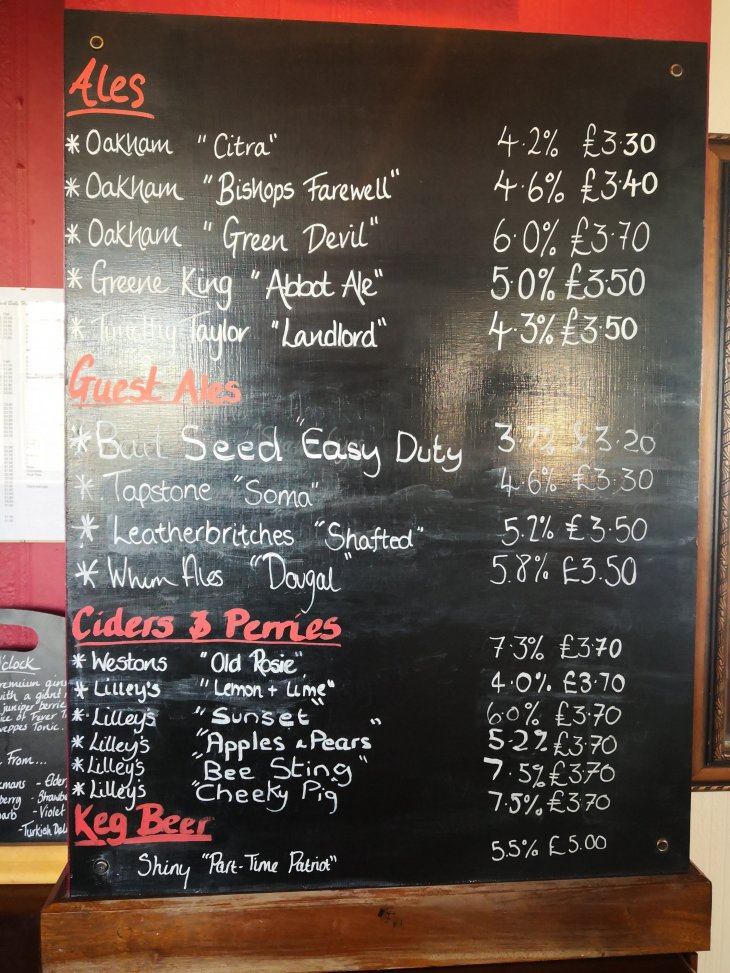 Ales
* Oakham "Citra" 4.2% £3.30
* Oakham "Bishops Farewell" 4.6% £3.40
* Oakham "Green Devil" 6.0% £3.70
* Greene King "Abbot Ale" 5.0% £3.50
* Timothy Taylor "Landlord" 4.3% £3.50
Guest Ales
* Seed "Easy Duty 3.7% £3.20
* Tapstone "Soma" 4.6% £3.30
* Leatherbritches "Shafted" 5.2% £3.50
* Whim Ales "Dougal" 5.8% £3.50
Ciders & Perries
* Westons "Old Rosie" 7.3% £3.70
* Lilley's "Lemon + Lime" 4.0% £3.70
* Lilley's "Sunset" 6.0% £3.70
* Lilley's "Apples & Pears" 5.2% £3.70
* Lilley's "Bee Sting" 7.5% £3.70
* Lilley's "Cheeky Pig 7.5% £3.70
Keg Beer
Shiny "Part-Time Patriot" 5.5% £5.00
o'clock
with a giant
juniper
of Fever
Tonic.
From...
- Elder
- Violet
-Turkish